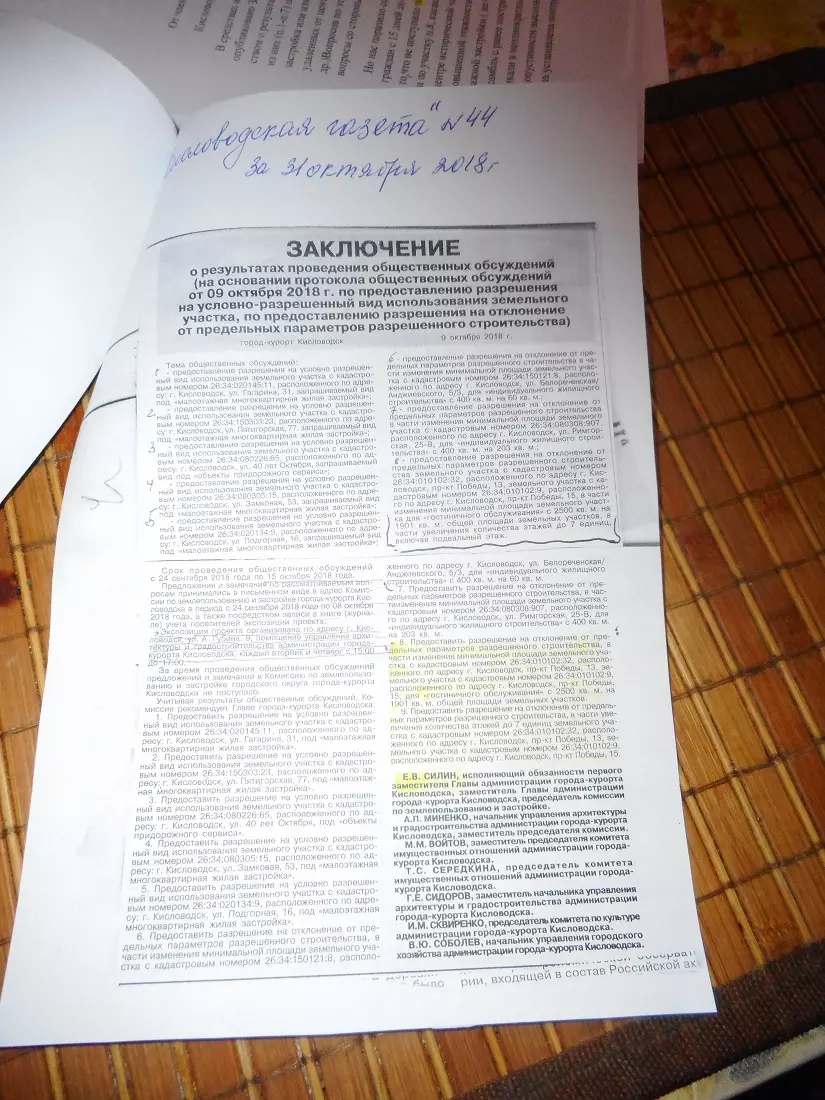 От член
Кисловод
В средствах
опубликована З
ством о результа
из них (п.1-п.7) от
застройка или из
удаленных от цент
др.)Вопросы по ус
вопросы со сторон
Но нас поразило о
граждан с 15 дней до
то, что не поступило
и по участку п.8, када
Кисловодская газета" N 44
за 31 октября 2018 г
ЗАКЛЮЧЕНИЕ
о результатах проведения общественных обсуждений
(на основании протокола общественных обсуждений
от 09 октября 2018 г. по предоставлению разрешения
на условно-разрешенный вид использования земельного
участка, по предоставлению разрешения на отклонение
от предельных параметров разрешенного строительства)
город-курорт Кисловодск 9 октября 2018 г.
Тема общественных обсуждений:
1 - предоставление разрешения на условно разрешен-
ный вид использования земельного участка с кадастро-
вым номером 26:34:020145:11, расположенного по адре-
су: г. Кисловодск, ул. Гагарина, 31, запрашиваемый вид
под «малоэтажная многоквартирная жилая застройка»;
2 - предоставление разрешения на условно разрешен-
ный вид использования земельного участка с кадастро-
вым номером 26:34:150303:23, расположенного по адре-
су: г. Кисловодск, ул. Пятигорская, 77, запрашиваемый вид
под «малоэтажная многоквартирная жилая застройка»;
3 - предоставление разрешения на условно разрешен-
ный вид использования земельного участка с кадастро-
вым номером 26:34:080226:65, расположенного по ад-
ресу: г. Кисловодск, ул. 40 лет Октября, запрашиваемый
вид под «объекты придорожного сервиса»;
4 - предоставление разрешения на условно разрешен-
ный вид использования земельного участка с кадастро-
вым номером 26:34:080305:15, расположенного по адре-
су: г. Кисловодск, ул. Замковая, 53, запрашиваемый вид
под «малоэтажная многоквартирная жилая застройка»;
5 - предоставление разрешения на условно разрешен-
ный вид использования земельного участка с кадастро-
вым номером 26:34:020134:9, расположенного по адре-
су: г. Кисловодск, ул. Подгорная, 16, запрашиваемый вид
под «малоэтажная многоквартирная жилая застройка»;
6 - предоставление разрешения на отклонение от пре-
дельных параметров разрешенного строительства в ча-
сти изменения минимальной площади земельного участ-
ка с кадастровым номером 26:34:150121:8, расположен-
ного по адресу г. Кисловодск, ул. Белореченская/
Анджиевского, 5/3, для «индивидуального жилищного
строительства» с 400 кв. м. на 60 кв. м.;
7 - предоставление разрешения на отклонение от
предельных параметров разрешенного строительства
в части изменения минимальной площади земельного
участка с кадастровым номером 26:34:080308:907,
расположенного по адресу г. Кисловодск, ул. Римгор-
ская, 25-В, для «индивидуального жилищного строи-
тельства» с 400 кв. м. на 203 кв. м.;
8 - предоставление разрешения на отклонение от
предельных параметров разрешенного строитель-
ства земельного участка с кадастровым номером
26:34:010102:32, расположенного по адресу г. Кис-
ловодск, пр-кт Победы, 13, земельного участка с ка-
дастровым номером 26:34:010102:9, расположенно-
го по адресу г. Кисловодск, пр-кт Победы, 15, в части
изменения минимальной площади земельного участ-
ка для «гостиничного обслуживания» с 2500 кв. м. на
1901 кв. м. общей площади земельных участков, в
части увеличения количества этажей до 7 единиц,
включая подвальный этаж.
Срок проведения общественных обсуждений
с 24 сентября 2018 года по 15 октября 2018 года.
Предложения и замечания по рассматриваемым воп-
росам принимались в письменном виде в адрес Комис-
сии по землепользованию и застройке города-курорта Кис-
ловодска в период с 24 сентября 2018 года по 08 октября
2018 года, а также посредством записи в книге (журна-
ле) учета посетителей экспозиции проекта.
Экспозиция проекта организована по адресу г. Кис-
ловодск, ул. А. Губина, 9, помещение управления архи-
тектуры и градостроительства администрации города-
курорта Кисловодска, каждый вторник и четверг с 15:00
до 17:00.
За время проведения общественных обсуждений
предложений и замечаний в Комиссию по землепользо-
ванию и застройке городского округа города-курорта
Кисловодска не поступило.
Учитывая результаты общественных обсуждений, Ко-
миссия рекомендует Главе города-курорта Кисловодска:
1. Предоставить разрешение на условно разрешен-
ный вид использования земельного участка с кадастро-
вым номером 26:34:020145:11, расположенного по ад-
ресу: г. Кисловодск, ул. Гагарина, 31, под «малоэтажная
многоквартирная жилая застройка».
2. Предоставить разрешение на условно разрешен-
ный вид использования земельного участка с кадастро-
вым номером 26:34:150303:23, расположенного по ад-
ресу: г. Кисловодск, ул. Пятигорская, 77, под «малоэтаж-
ная многоквартирная жилая застройка».
3. Предоставить разрешение на условно разрешен-
ный вид использования земельного участка с кадастро-
вым номером 26:34:080226:65, расположенного по ад-
ресу: г. Кисловодск, ул. 40 лет Октября, под «объекты
придорожного сервиса».
4. Предоставить разрешение на условно разрешен-
ный вид использования земельного участка с кадастро-
вым номером 26:34:080305:15, расположенного по ад-
ресу: г. Кисловодск, ул. Замковая, 53, под «малоэтажная
многоквартирная жилая застройка».
5. Предоставить разрешение на условно разрешен-
ный вид использования земельного участка с кадастро-
вым номером 26:34:020134:9, расположенного по адре-
су: г. Кисловодск, ул. Подгорная, 16, под «малоэтажная
многоквартирная жилая застройка».
6. Предоставить разрешение на отклонение от пре-
дельных параметров разрешенного строительства, в
части изменения минимальной площади земельного уча-
стка с кадастровым номером 26:34:150121:8, располо-
женного по адресу г. Кисловодск, ул. Белореченская/
Анджиевского, 5/3, для «индивидуального жилищного
строительства» с 400 кв. м. на 60 кв. м.
7. Предоставить разрешение на отклонение от пре-
дельных параметров разрешенного строительства, в час-
тиизменения минимальной площади земельного участка с
кадастровым номером 26:34:080308:907, расположенно-
го по адресу г. Кисловодск, ул. Римгорская, 25-В, для
«индивидуального жилищного строительства» с 400 кв. м.
на 203 кв. м.
8. Предоставить разрешение на отклонение от пре-
дельных параметров разрешенного строительства, в
части изменения минимальной площади земельного уча-
стка с кадастровым номером 26:34:010102:32, располо-
женного по адресу г. Кисловодск, пр-кт Победы, 13, зе-
мельного участка с кадастровым номером 26:34:010102:9,
расположенного по адресу г. Кисловодск, пр-кт Победы,
15, для «гостиничного обслуживания» с 2500 кв. м. на
1901 кв. м. общей площади земельных участков.
9. Предоставить разрешение на отклонение от предель-
ных параметров разрешенного строительства, в части уве-
личения количества этажей до 7 единиц земельного уча-
стка с кадастровым номером 26:34:010102:32, располо-
женного по адресу г. Кисловодск, пр-кт Победы, 13, зе-
мельного участка с кадастровым номером 26:34:010102:9,
расположенного по адресу г. Кисловодск, пр-кт Победы, 15.
Е.В. СИЛИН, исполняющий обязанности первого
заместителя Главы администрации города-курорта
Кисловодска, заместитель Главы администрации
города-курорта Кисловодска, председатель комиссии
по землепользованию и застройке.
А.П. МИНЕНКО, начальник управления архитектуры
и градостроительства администрации города-курорта
Кисловодска, заместитель председателя комиссии.
М.М. ВОЙТОВ, заместитель председателя комитета
имущественных отношений администрации города-
курорта Кисловодска.
Т.С. СЕРЕДКИНА, председатель комитета
имущественных отношений администрации города-
курорта Кисловодска.
Г.Е. СИДОРОВ, заместитель начальника управления
архитектуры и градостроительства администрации
города-курорта Кисловодска.
И.М. СКВИРЕНКО, председатель комитета по культуре
администрации города-курорта Кисловодска.
В.Ю. СОБОЛЕВ, начальник управления городского
хозяйства администрации города-курорта Кисловодска.
было рии, входящей в состав Российской ак